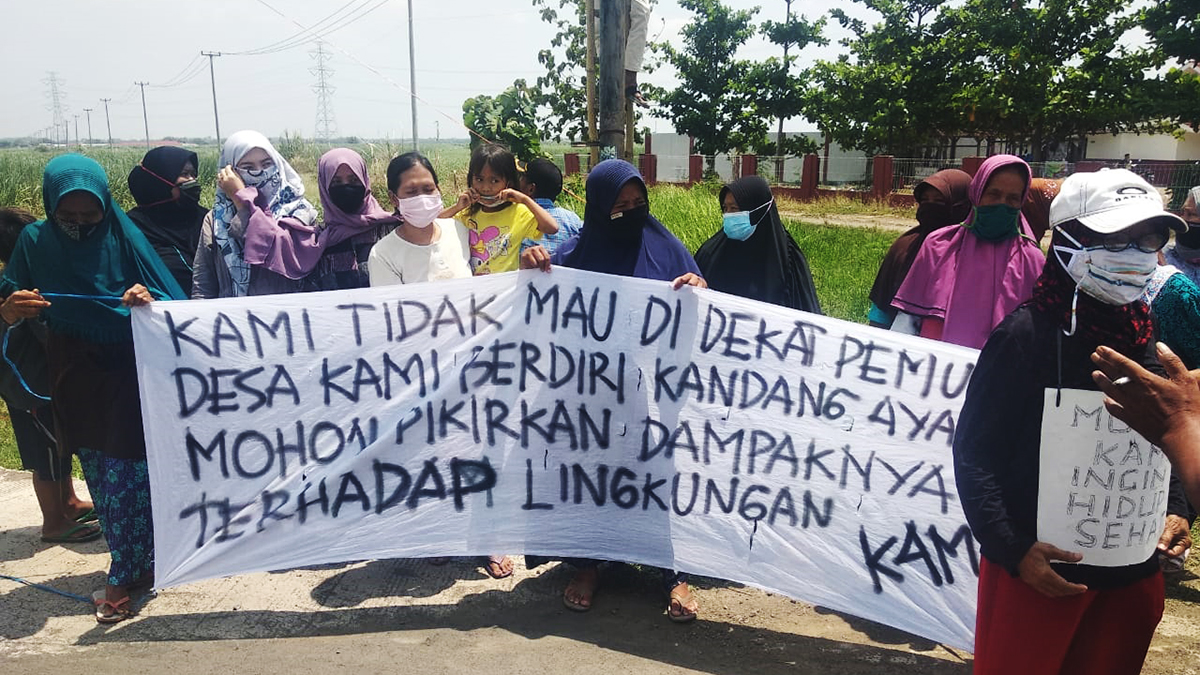 KAMI TIDAK MAU DI DEKAT PEMU
DESA KAMI BERDIRI KANDANG AYA
MOHON PIKIRKAN DAMPAKNYA
TERHADAP LINGKUNGAN KAMI
INGIN
HIDUP
SEHA